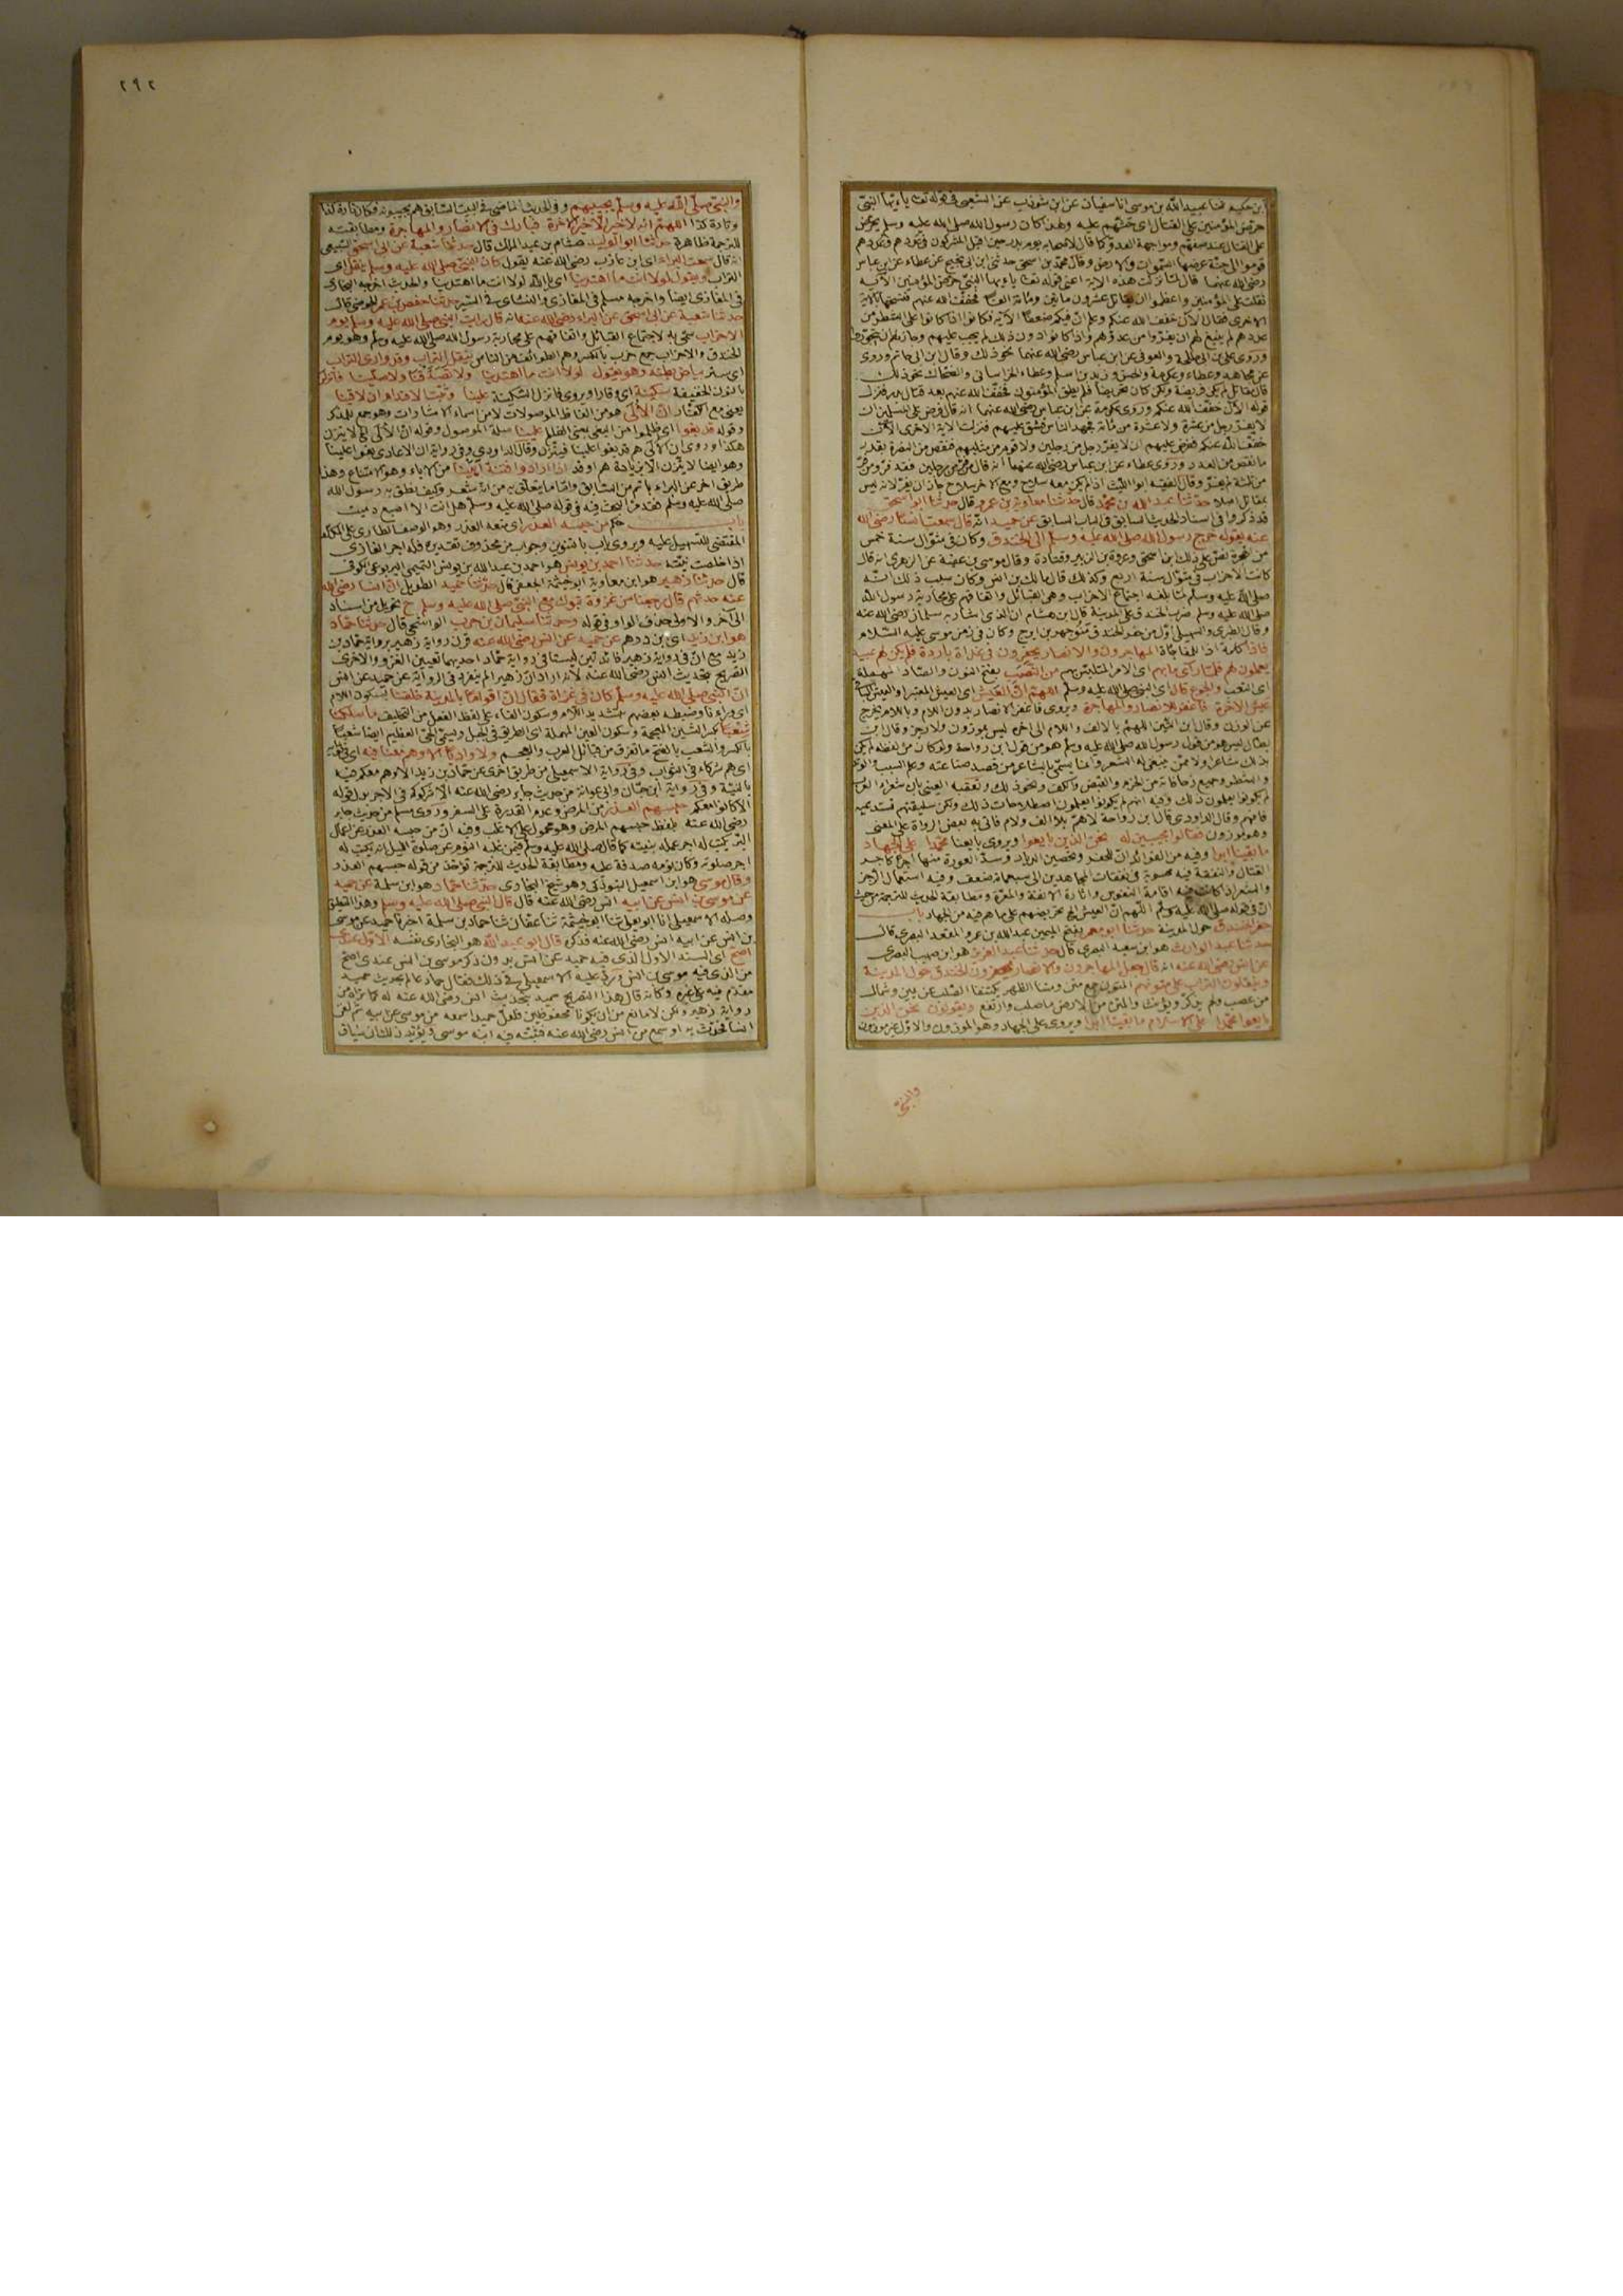 ابن حكيم ثنا عبيد الله بن موسى انا سفيان عن ابن شوذب عن الشعبي في قوله تعا يا ايها النبي
حرض المؤمنين على القتال اى حثهم عليه ولهذا كان رسول الله صلى الله عليه وسلم يحرض
على القتال عند صفهم ومواجهة العدو كما قال لاصحابه يوم بدر حين اقبل المشركون في عددهم وعددهم
قوموا الى جنة عرضها السموات والارض وقال محمد بن اسحق حدثني ابن ابى نجيح عن عطاء عن ابن عباس
رضى الله عنهما قال لما نزلت هذه الاية اعنى قوله تعا يا ايها النبي حرض المؤمنين الآية
ثقلت على المؤمنين واعظموا ان يقاتل عشرون مأتين ومائة الفا فخفف الله عنهم فنسخها بالآية
الاخرى فقال الآن خفف الله عنكم وعلم ان فيكم ضعفا الآية فكانوا اذا كانوا على الشطر من
عددهم لم ينبغ لهم ان يفروا من عدوهم واذا كانوا دون ذلك لم يجب عليهم وجاز لهم ان يتحوزوا
وروى على بن ابى طلحة والعوفى عن ابن عباس رضى الله عنهما نحو ذلك وقال ابن ابى حاتم وروى
عن مجاهد وعطاء وعكرمة والحسن وزيد بن اسلم وعطاء الخراسانى والضحاك نحو ذلك
قوله الآن خفف الله عنكم وروى عكرمة عن ابن عباس رضى الله عنهما انه قال فرض على المسلمين ان
لا يفر رجل من عشرة ولا عشرة من مائة فجهد الناس وشق عليهم فنزلت الآية الاخرى الآن
خفف الله عنكم ففرض عليهم ان لا يفر رجل من رجلين ولا قوم من مثليهم فنقص من النصرة بقدر
ما نقص من العدد وروى عطاء عن ابن عباس رضى الله عنهما انه قال من فر من رجلين فقد فر ومن فر
من ثلثة لم يفر وقال الفقيه ابو الليث اذا لم يكن معه سلاح ومع الآخر سلاح جاز ان يفر لانه ليس
بمقاتل اصلا حدثنا عبد الله بن محمد قال حدثنا معاوية بن عمرو قال حدثنا ابو اسحق
قد ذكروا فى اسناد الحديث السابق فى الباب السابق عن حميد انه قال سمعت انسا رضى الله
عنه يقول خرج رسول الله صلى الله عليه وسلم الى الخندق وكان في شوال سنة خمس
من الهجرة نص على ذلك ابن اسحق وعروة بن الزبير وقتادة وقال موسى بن عقبة عن الزهرى انه قال
كانت الاحزاب فى شوال سنة اربع وكذلك قال مالك بن انس وكان سبب ذلك انه
صلى الله عليه وسلم لما بلغه اجتماع الاحزاب وهى القبائل واتفاقهم على محاربة رسول الله
صلى الله عليه وسلم ضرب الخندق على المدينة قال ابن هشام ان الذى اشار به سلمان رضى الله عنه
وقال الطبرى والسهيلى اول من حفر الخندق منوجهر بن ايرج وكان في زمن موسى عليه السلام
فاذا كلمة اذا للمفاجاة المهاجرون والانصار يحفرون في غداة باردة فلم يكن لهم عبيد
يعملون لهم فلما رأى ما بهم اى الامر المتلبس بهم من النصب بفتح النون والصاد المهملة
اى التعب والجوع قال اى النبي صلى الله عليه وسلم اللهم ان العيش اى العيش المعتبر او العيش الباقى
عيش الآخرة فاغفر للانصار والمهاجرة ويروى فاغفر الانصار بدون اللام وباللام يخرج
عن الوزن وقال ابن التين اللهم بالالف واللام الى اخره ليس بموزون ولا رجز وقال ابن
بطال ليس هو من قول رسول الله صلى الله عليه وسلم هو من قول ابن رواحة ولو كان من لفظه لم يكن
بذلك شاعرا ولا ممن ينبغى له الشعر وانما يسمى بالشاعر من قصد صناعته وعلم السبب والوتد
والشطر وجميع زحافاته من الخزم والقبض والكف ونحو ذلك وتعقبه العينى بان شعراء العرب
لم يكونوا يعلمون ذلك وفيه انهم لم يكونوا يعلمون اصطلاحات ذلك ولكن سليقتهم
فافهم وقال الداودى قال ابن رواحة لاهم بلا الف ولام فاتى به بعض الرواة على المعنى
وهو بوزون فقالوا مجيبين له نحن الذين بايعوا ويروى بايعنا محمدا على الجهاد
ما بقينا ابدا وفيه من الفوائد ان للحفر وتحصين الديار وسد العورة منها اجرا كاجر
القتال والنفقة فيه محسوبة فى نفقات المجاهدين الى سبعمائة ضعف وفيه استعمال الرجز
والشعر اذا كانت فيه اقامة النفوس واثارة الانفة والمعزة ومطابقة الحديث للترجمة من حيث
ان فى قوله صلى الله عليه وسلم اللهم ان العيش الخ تحريضهم على ما هم فيه من الجهاد باب
حفر الخندق حول المدينة حدثنا ابو معمر بفتح الميمين عبد الله بن عمرو المقعد البصرى قال
حدثنا عبد الوارث هو ابن سعيد البصرى قال حدثنا عبد العزيز هو ابن صهيب البصرى
عن انس رضى الله عنه انه قال جعل المهاجرون والانصار يحفرون الخندق حول المدينة
وينقلون التراب على متونهم المتون جمع متن ومتنا الظهر مكتنفا الصلب عن يمين وشمال
من عصب ولحم يذكر ويؤنث والمتن من الارض ما صلب وارتفع ويقولون نحن الذين
بايعوا محمدا على الاسلام ما بقينا ابدا ويروى على الجهاد وهو الموزون والاول غير موزون
والنبي
٢٩٢
والنبي صلى الله عليه وسلم يجيبهم وفي الحديث الماضى في الباب السابق هم يجيبونه فكان تارة كذا
وتارة كذا اللهم انه لا خير الا خير الآخرة فبارك في الانصار والمهاجرة ومطابقته
للترجمة ظاهرة حدثنا ابو الوليد هشام بن عبد الملك قال حدثنا شعبة عن ابى اسحق السبيعى
انه قال سمعت البراء اى ابن عازب رضى الله عنه يقول كان النبي صلى الله عليه وسلم ينقل اى
التراب ويقول لولا انت ما اهتدينا اى يا الله لولا انت ما اهتدينا والحديث اخرجه البخارى
فى المغازى ايضا واخرجه مسلم فى المغازى والنسائى فى السير حدثنا حفص بن عمر الحوضى قال
حدثنا شعبة عن ابى اسحق عن البراء رضى الله عنه انه قال رأيت النبي صلى الله عليه وسلم يوم
الاحزاب سمى به لاجتماع القبائل واتفاقهم على محاربة رسول الله صلى الله عليه وسلم وهو يوم
الخندق والاحزاب جمع حزب بالكسر وهم الطوائف من الناس ينقل التراب وقد وارى التراب
اى ستر بياض بطنه وهو يقول لولا انت ما اهتدينا ولا تصدقنا ولا صلينا فانزلن
بالنون الخفيفة سكينة اى وقارا ويروى فانزل السكينة علينا وثبت الاقدام ان لاقينا
يعنى مع الكفار ان الالى هو من الفاظ الموصولات لا من اسماء الاشارات وهو جمع للمذكر
وقوله قد بغوا اى ظلموا من البغى بمعنى الظلم علينا صلة الموصول وقوله ان الالى الخ لا يتزن
هكذا وروى ان الالى هم قد بغوا علينا فيتزن وقال الداودى وفى رواية ان الاعادى بغوا علينا
وهو ايضا لا يتزن الا بزيادة هم او قد اذا ارادوا فتنة ابينا من الاباء وهو الامتناع وهذا
طريق آخر عن البراء باتم من السابق واما ما يتعلق به من انه شعر وكيف نطق به رسول الله
صلى الله عليه وسلم فقد مر البحث فيه في قوله صلى الله عليه وسلم هل انت الا اصبع دميت
باب حكم من حبسه العذر اى منعه العذر وهو الوصف الطارى على المكلف
المقتضى للتسهيل عليه ويروى باب بالتنوين وجواب من محذوف تقديره فله اجر الغازى
اذا خلصت نيته حدثنا احمد بن يونس هو احمد بن عبد الله بن يونس التميمى اليربوعى الكوفى
قال حدثنا زهير هو ابن معاوية ابو خيثمة الجعفى قال حدثنا حميد الطويل ان انسا رضى الله
عنه حدثهم قال رجعنا من غزوة تبوك مع النبي صلى الله عليه وسلم ح تحويل من اسناد
الى آخر والاولى حذف الواو في قوله وحدثنا سليمان بن حرب الواشحى قال حدثنا حماد
هو ابن زيد اى بن درهم عن حميد عن انس رضى الله عنه قرن رواية زهير برواية حماد بن
زيد مع ان فى رواية زهير فائدتين ليستا فى رواية حماد احديهما تعيين الغزو والاخرى
التصريح بتحديث انس رضى الله عنه لانه اراد ان زهيرا لم ينفرد في الرواية عن حميد عن انس
ان النبي صلى الله عليه وسلم كان في غزاة فقال ان اقواما بالمدينة خلفنا بسكون اللام
اى وراءنا وضبطه بعضهم بتشديد اللام وسكون الفاء على لفظ الفعل من التخليف ما سلكنا
شعبا بكسر الشين المعجمة وسكون العين المهملة اى الطريق في الجبل ويسمى الحى العظيم ايضا شعبا
بالكسر والشعب بالفتح ما تفرق من قبائل العرب والعجم ولا واديا الا وهم معنا فيه اى في ثوابه
اى هم شركاء فى الثواب وفى رواية الاسمعيلى من طريق اخرى عن حماد بن زيد الا وهم معكم فيه
بالنية وفى رواية ابن حبان وابى عوانة من حديث جابر رضى الله عنه الا شركوكم فى الاجر بدل قوله
الا كانوا معكم حبسهم العذر من المرض وعدم القدرة على السفر وروى مسلم من حديث جابر
رضى الله عنه بلفظ حبسهم المرض وهو محمول على الاغلب وفيه ان من حبسه العذر عن اعمال
البر يكتب له اجر عمله بنيته كما قال صلى الله عليه وسلم فيمن غلبه النوم عن صلوة الليل انه يكتب له
اجر صلوته وكان نومه صدقة عليه ومطابقة الحديث للترجمة تؤخذ من قوله حبسهم العذر
وقال موسى هو ابن اسمعيل التبوذكى وهو شيخ البخارى حدثنا حماد هو ابن سلمة عن حميد
عن موسى بن انس عن ابيه انس رضى الله عنه قال قال النبي صلى الله عليه وسلم وهذا التعليق
وصله الاسمعيلى انا ابو يعلى ثنا ابو خيثمة ثنا عفان ثنا حماد بن سلمة اخبرنا حميد عن موسى
بن انس عن ابيه انس رضى الله عنه فذكره قال ابو عبد الله هو البخارى نفسه الاول عندى
اصح اى السند الاول الذى فيه حميد عن انس بدون ذكر موسى بن انس عندى اصح
من الذى فيه موسى بن انس ورد عليه الاسمعيلى فى ذلك فقال حماد عالم بحديث حميد
مقدم فيه على غيره وكانه قال هذا التصريح حميد بتحديث انس رضى الله عنه له كما تراه من
رواية زهير ولكن لا مانع من ان يكونا محفوظين فلعل حميدا سمعه من موسى عن ابيه ثم لقى
انسا فحدث به او سمع من انس رضى الله عنه فثبته فيه ابنه موسى ويؤيد ذلك ان سياق